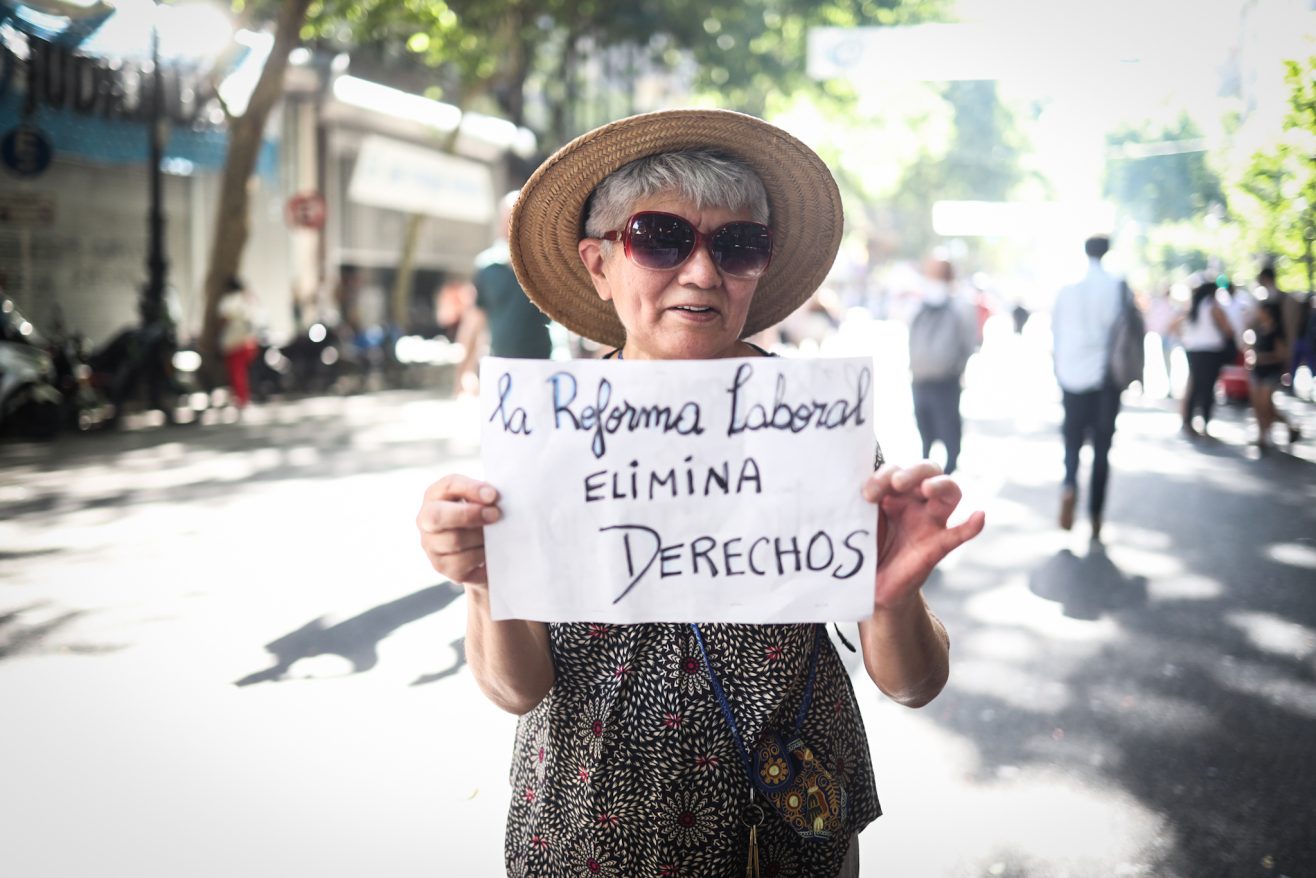 la Reforma Laboral
ELIMINA
DERECHOS